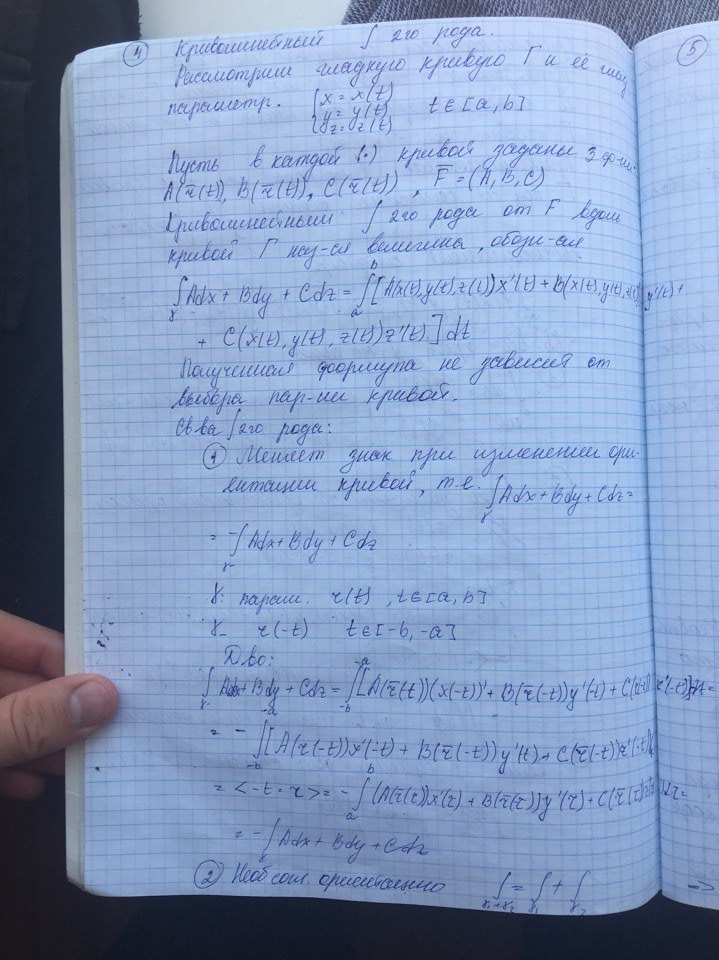 ④ Криволинейный ∫ 2го рода.
Рассмотрим гладкую кривую Г и её
параметр. { x = x(t) y = y(t) z = z(t) t ∈ [a, b]
Пусть в каждой (·) кривой заданы 3 ф-ии:
A(r̄(t)), B(r̄(t)), C(r̄(t)), F̄ = (A, B, C)
Криволинейным ∫ 2го рода от F вдоль
кривой Г наз-ся величина, обозн-ая
∫γ Adx + Bdy + Cdz = ∫ₐᵇ [A(x(t), y(t), z(t)) x'(t) + B(x(t), y(t), z(t)) y'(t) +
+ C(x(t), y(t), z(t)) z'(t)] dt
Полученная формула не зависит от
выбора пар-ии кривой.
Св-ва ∫ 2го рода:
① Меняет знак при изменении ори-
ентации кривой, т.е. ∫γ Adx + Bdy + Cdz =
= -∫γ- Adx + Bdy + Cdz
γ: парам. r(t), t ∈ [a, b]
γ- r(-t) t ∈ [-b, -a]
Д-во:
∫γ- Adx + Bdy + Cdz = ∫₋b⁻ᵃ [A(r̄(t))(x(-t))' + B(r̄(-t)) y'(-t) + C(r̄(-t)) z'(-t)]dt =
= -∫₋b⁻ᵃ [A(r(-t)) x'(-t) + B(r̄(-t)) y'(t) + C(r̄(-t)) z'(-t)
= <-t = τ> = -∫ₐᵇ (A(r̄(τ)) x'(τ) + B(r̄(τ)) y'(τ) + C(r̄(τ)) z'(τ))dτ =
= -∫γ Adx + Bdy + Cdz
② Необ согл. ориентационно ∫γ₁+γ₂ = ∫γ₁ + ∫γ₂ ->
⑤